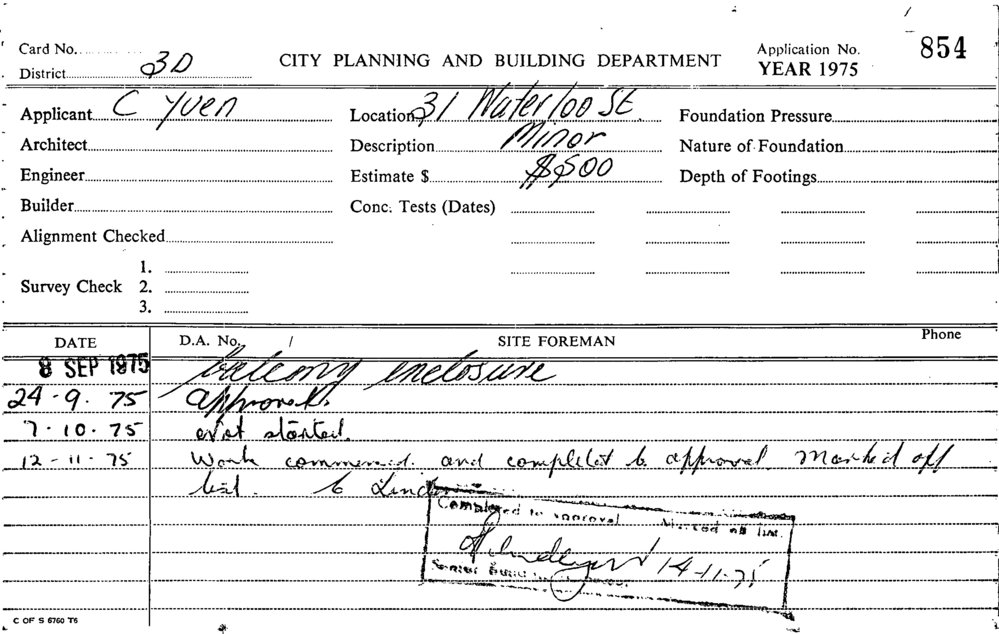 Card No.
District 3D
CITY PLANNING AND BUILDING DEPARTMENT
Application No.
YEAR 1975
854
Applicant C Yuen
Location 31 Waterloo St.
Foundation Pressure
Architect
Description Minor
Nature of Foundation
Engineer
Estimate $ $500
Depth of Footings
Builder
Conc. Tests (Dates)
Alignment Checked
Survey Check
1.
2.
3.
DATE
D.A. No. /
SITE FOREMAN
Phone
8 SEP 1975 balcony enclosure
24 - 9 - 75 approved.
7 - 10 - 75 Not started.
12 - 11 - 75 Work commenced. and completed to approval Marked off
list.
Completed to approval Marked off list.
14-11-75
Senior
C OF S 6760 T6